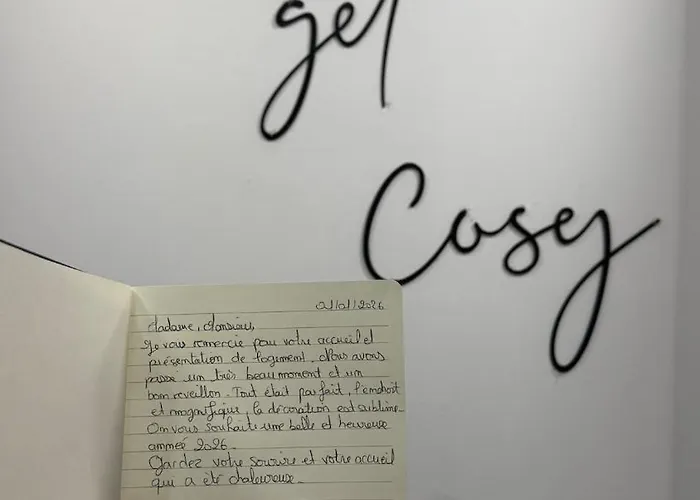 get
Cosy
01/01/2026
Madame, Monsieur,
Je vous remercie pour votre accueil et
présentation de logement. Nous avons
passe un très beau moment et un
bon reveillon. Tout était parfait, l'endroit
et magnifique, la décoration est sublime.
On vous souhaite une belle et heureuse
année 2026.
Gardez votre sourire et votre accueil
qui a été chaleureux.